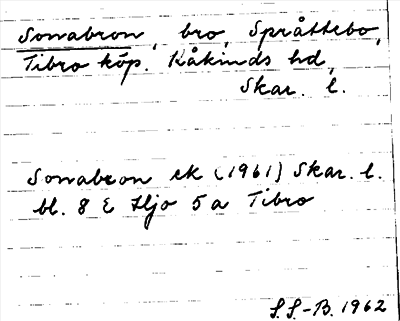 Sonabron, bro, Språttebo,
Tibro köp. Kåkinds hd,
Skar. l.
Sonabron ek (1961) Skar. l.
bl. 8 E Hjo 5 a Tibro
S.S.-B. 1962